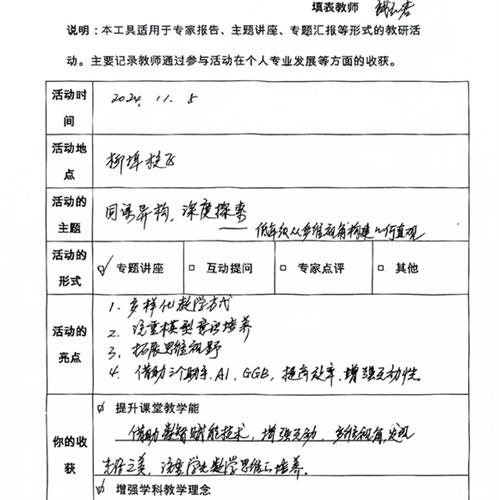 填表教师
说明：本工具适用于专家报告、主题讲座、专题汇报等形式的教研活
动。主要记录教师通过参与活动在个人专业发展等方面的收获。
活动时间 2024.11.5
活动地点 柳埠校区
活动的主题 同课异构、深度探索
——低年级从多维视角构建几何直观
活动的形式 ☑ 专题讲座 □ 互动提问 □ 专家点评 □ 其他
活动的亮点
1. 多样化教学方式
2. 注重模型意识培养
3. 拓展思维视野
4. 借助三个助手、AI、GGB，提高效率、增强互动性。
你的收获
☑ 提升课堂教学能
借助数智赋能技术，增强互动、多维视角发现
之美、注重学生数学思维的培养。
☑ 增强学科教学理念